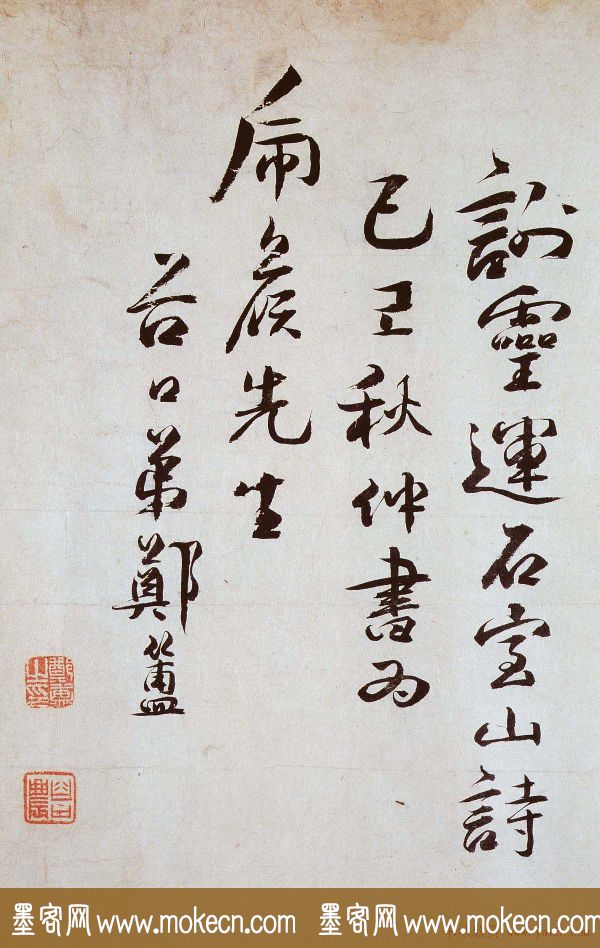 謝靈運石室山詩
秋仲書為
先生
谷口弟鄭簠
鄭簠之印
谷口農
墨客网 www.mokecn.com 墨客网 www.mokecn.com